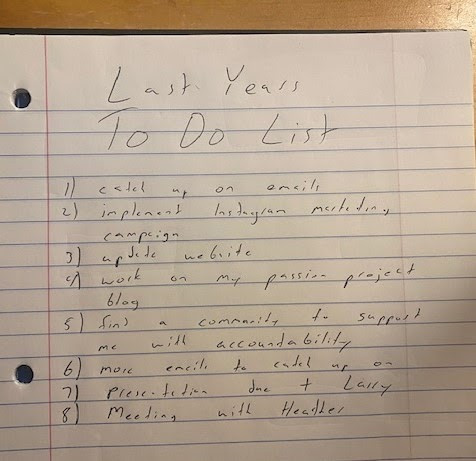 Last Years
To Do List
1) catch up on emails
2) implement Instagram marketing
campaign
3) update website
4) work on my passion project
blog
5) find a community to support
me with accountability
6) more emails to catch up on
7) Presentation due + Larry
8) Meeting with Heather